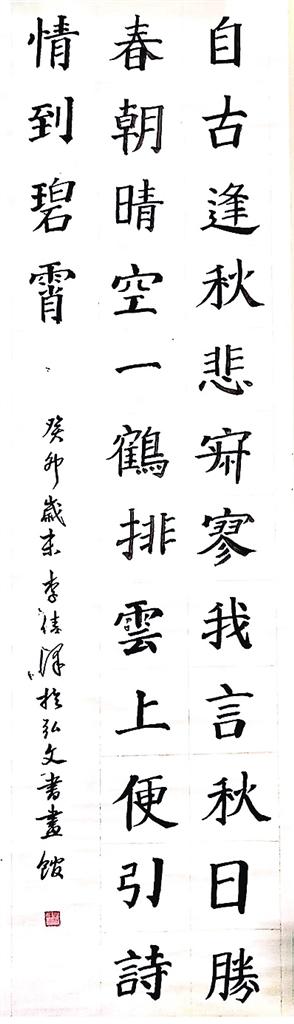 自古逢秋悲寂寥我言秋日勝
春朝晴空一鶴排雲上便引詩
情到碧霄
癸卯歲末李佳澤於弘文書畫館